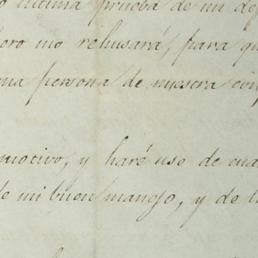 última prueba de mi
no rehusará, para
persona de nuestra
motivo, y haré uso de
mi buen manejo, y de